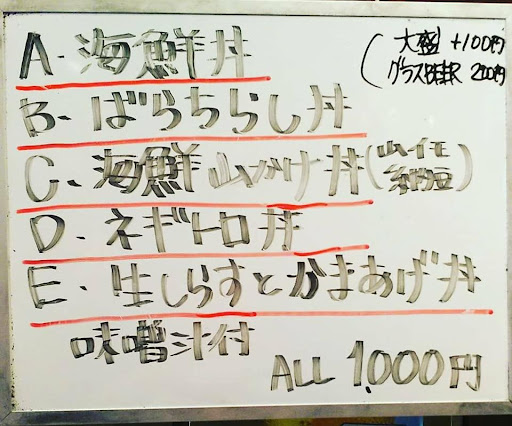 A. 海鮮丼
(大盛 +100円
グラスBEER 200円
B. ばらちらし丼
C. 海鮮山かけ丼(山イモ
納豆)
D. ネギトロ丼
E. 生しらすとかまあげ丼
味噌汁付
ALL 1.000円